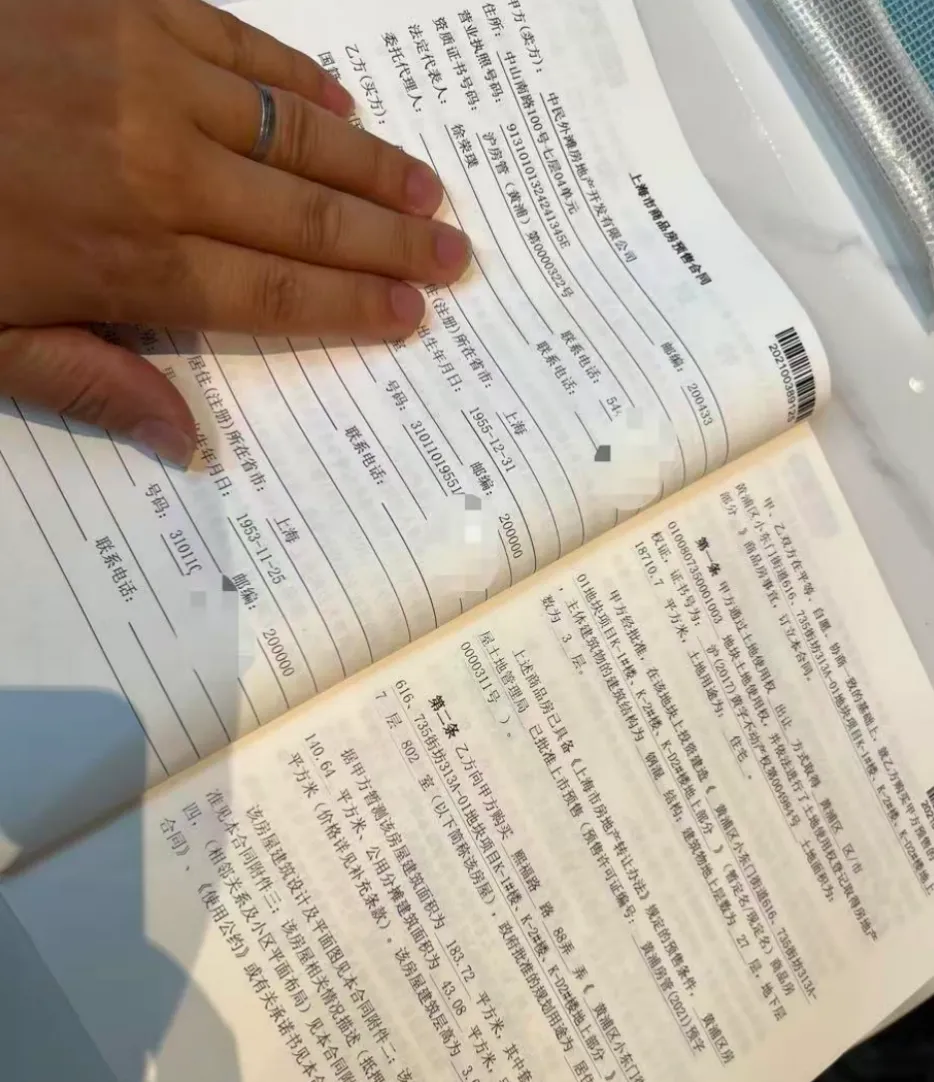 上海市商品房预售合同
202100389125
甲方(卖方): 中民外滩房地产开发有限公司
住所: 中山南路100号七层04单元 邮编: 200433
营业执照号码: 91310101324241345E
资质证书号码: 沪房管(黄浦)第0000322号 联系电话: 54
法定代表人: 徐荣璞 联系电话:
委托代理人:
乙方(买方):
国籍
住(注册)所在省市: 上海
出生年月日: 1955-12-31 邮编: 200000
室
号码: 31011019551
联系电话:
居住(注册)所在省市: 上海
生年月日: 1953-11-25 邮编: 200000
号码: 31011
联系电话:
甲、乙双方在平等、自愿、协商一致的基础上,就乙方购买甲方预售的
黄浦区小东门街道616、735街坊313A-01地块项目K-1#楼、K-2#楼、K-D2#楼地上
部分 》商品房事宜,订立本合同。
第一条 甲方通过土地使用权 出让 方式取得 黄浦区 区/市
01008073500010​03 地块土地使用权,并依法进行了土地使用权登记取得房地产
权证,证书号为: 沪(2017)黄字不动产权第004964号 土地面积为:
18710.7 平方米,土地用途为: 住宅 。
甲方经批准,在该地块上投资建造《 黄浦区小东门街道616、735街坊313A-
01地块项目K-1#楼、K-2#楼、K-D2#楼地上部分 》(暂定名/现定名)商品房
,主体建筑物的建筑结构为 钢混 结构;建筑物地上层数为 27 层,地下层
数为 3 层。
上述商品房已具备《上海市房地产转让办法》规定的预售条件, 黄浦区房
屋土地管理局 已批准上市预售(预售许可证编号: 黄浦房管(2021)预字
0000311号 )。
第二条 乙方向甲方购买 熙福路 路 88弄 弄《 黄浦区小东门街道
616、735街坊313A-01地块项目K-1#楼、K-2#楼、K-D2#楼地上部分 》
7 层 802 室(以下简称该房屋),政府批准的规划用途为 居住
据甲方暂测该房屋建筑面积为 183.72 平方米,其中套
140.64 平方米、公用分摊建筑面积为 43.08 平方米,
平方米(价格详见补充条款)。该房屋建筑层高为 3.
该房屋建筑设计及平面图见本合同附件二;该
准见本合同附件三;该房屋相关情况描述(抵押
四,(相邻关系及小区平面布局)见本合同附
合同》、《使用公约》或有关承诺书见本